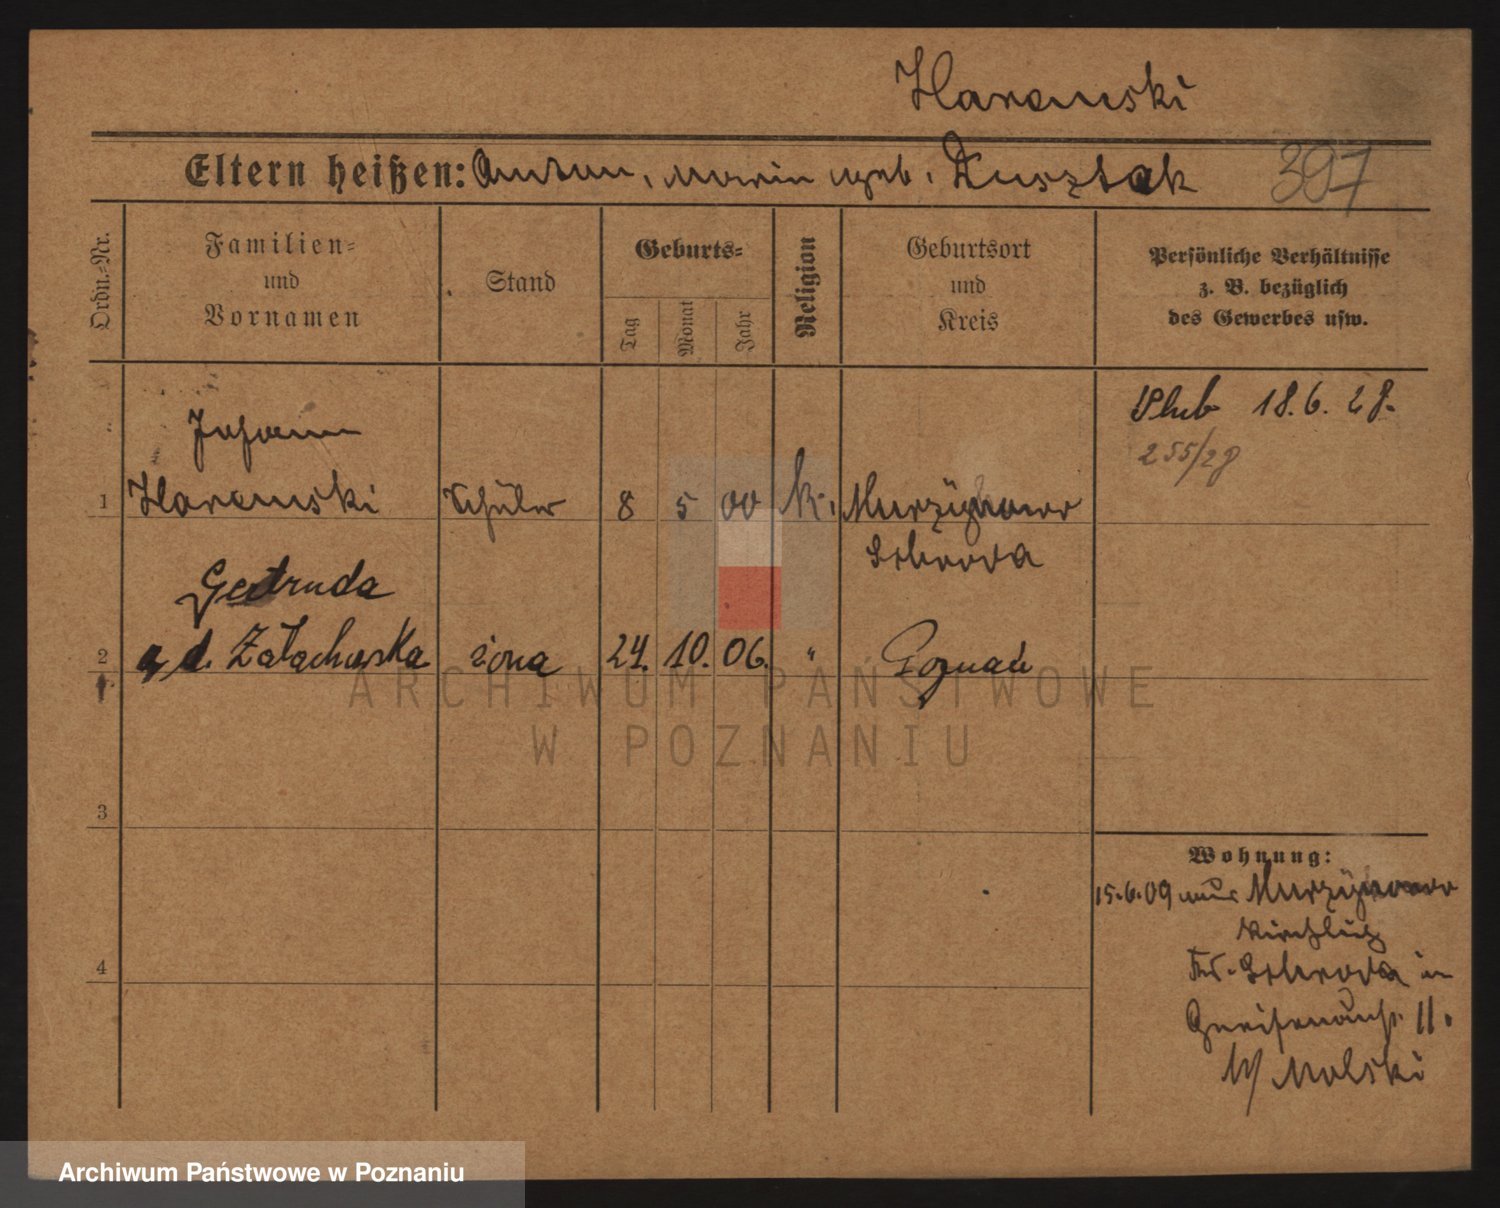 Haremski
Eltern heißen: Anton, Maria geb. Kusztak 397
Ordn.-Nr.
Familien-
und
Vornamen
Stand
Geburts-
Tag
Monat
Jahr
Religion
Geburtsort
und
Kreis
Persönliche Verhältnisse
z. B. bezüglich
des Gewerbes usw.
Ślub 18.6.28.
255/28
Johann
1 Haremski Schüler 8 5 00 k.
Schroda
Gertruda
2 żona 24. 10. 06. " Poznań
ARCHIWUM PAŃSTWOWE
W POZNANIU
3
Wohnung:
15.6.09 aus
Kr. Schroda in
4
Gneisenaustr. 11.
b/ Molski
Archiwum Państwowe w Poznaniu